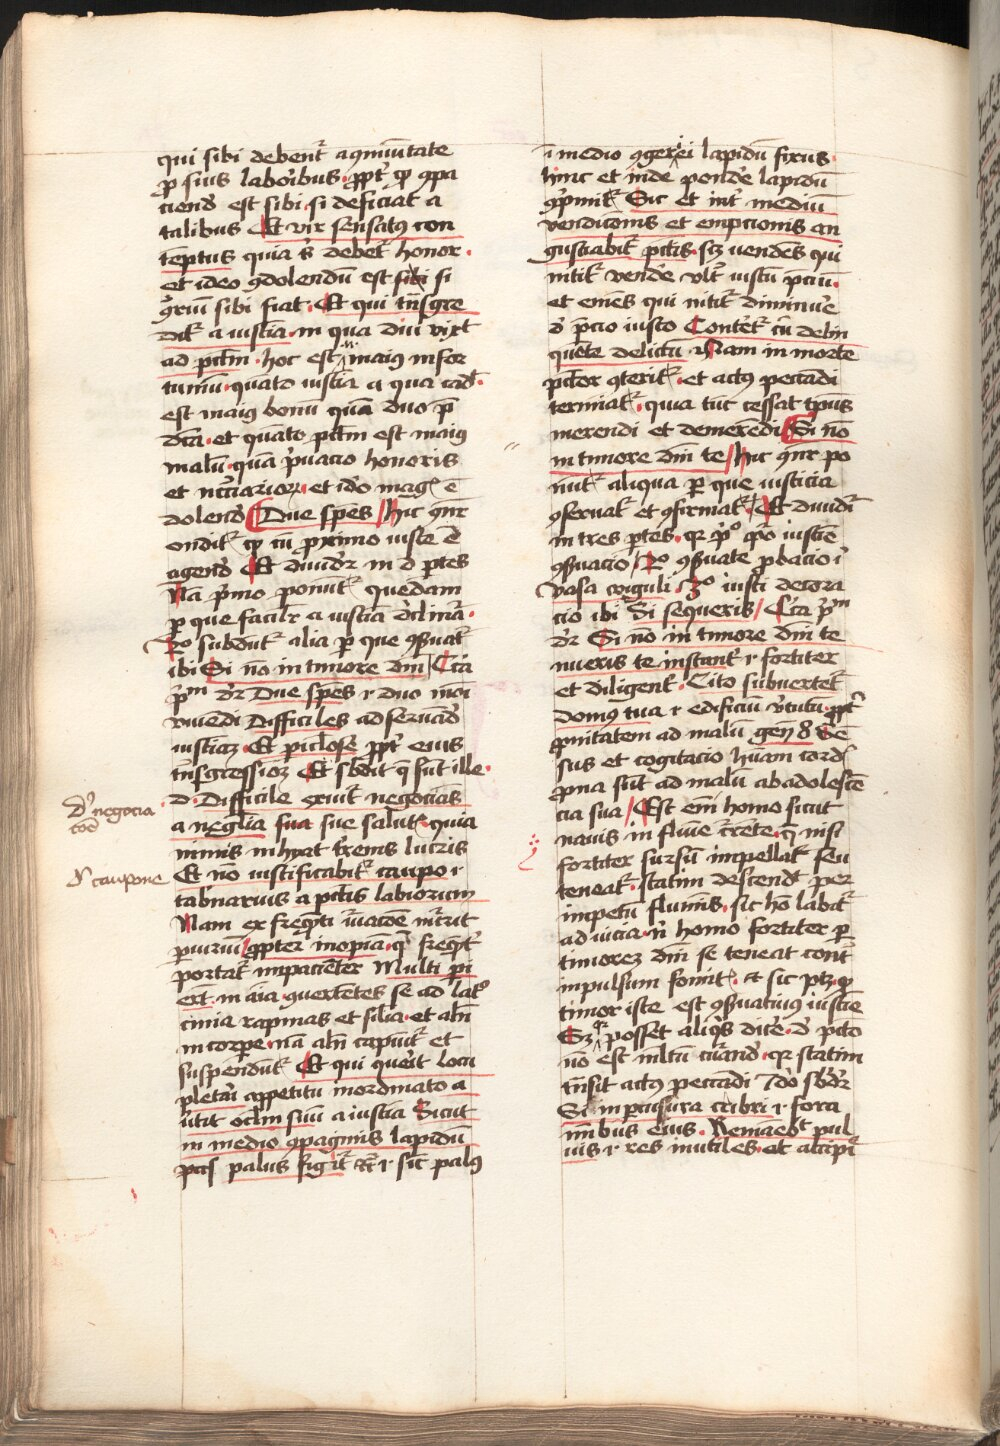 qui sibi debent᷑ a cōmunitate
ꝓ suis laboribus ꝓpt̄ qꝫ ꝯpa
ciend̄ est sibi si deficiat a
talibus Et vir sensatus con
temptus quia ei debet᷑ honor
et ideo ꝯdolendū est sibi si
ꝯͬriū sibi fiat Et qui tͣnsgre
dit᷑ a iusticia in qua diu vixit
ad pctm̄ hoc est maius infor
tuniū quāto iusticia a qua cad̄
est maius bonū quā duo p̄
dicta et quāto pctm̄ est maius
malū quā p̄uacio honoris
et nc̄iarioꝝ et ideo magꝭ ē
dolend̄ Due spēs Hic ꝯnr̄
ondit᷑ qꝫ cū ꝓximo iuste ē
agend̄ Et diuidit᷑ in d ꝑtes
Nā p̄mo ponūt᷑ quedam
ꝑ que facilit̄ a iusticia declinat᷑
2o subdūt᷑ alia ꝑ que ꝯseruat᷑
ibi Si nō in timore dn̄i Circa
p̄m dr̄ Due spēs ⁊ duo modi
viuendi Difficiles ad seruand̄
iusticiā Et ꝑiculose ꝓpt̄ eius
tͣnsgressionē Et sbdit q̄ sunt ille
d Difficile exuit᷑ negocians
a negligētia sua sue salut᷑ quia
nimis inhiat terrenis lucris
Et nō iustificabit᷑ caupo ⁊
tabernarius a pctis labiorum
Nam ex frequēti iuracione incurrit
ꝑiuriū ꝓpter inopiā q̄ frequēt᷑
portat᷑ impacienter Multi pec
cauerūt in aīa querētes se ad lat̄o
cinia rapinas et similia et aliqn̄
in corpore nā aliqn̄ capiunt᷑ et
suspēdūt᷑ Et qui querit locu
pletari appetitu inordinato a
uertit oclm̄ suū a iusticia Sicut
in medio ꝯpaginis lapidum
pac̄s palus figit᷑ &c ⁊ sicut palus
ī medio ꝯgeriei lapidū fixus
hinc et inde pondere lapidū
ꝯp̄mit᷑ Sic et int̄ mediū
vendicionis et empcionis an
gustiabit᷑ pctis scꝫ vendens qui
nitit᷑ vendere vlt᷑ iustū preciū
et emens qui nitit᷑ diminuere
d̄ precio iusto Conteret᷑ cū delin
quēte delictū Nam in morte
pctor ꝯterit᷑ et actus peccandi
terminat᷑ quia tūc cessat tp̄us
merendi et demerendi Si nō
in timore dn̄i te Hic ꝯnr̄ po
nūt᷑ aliqua ꝑ que iusticia
ꝯseruat᷑ et ꝯfirmat᷑ Et diuidit᷑
in tres ꝑtes qr p̄o ꝓo iusticie
ꝯseruacio 2o ꝯseruate ꝓbacio ī
Vasa figuli 3o iusti decora
cio ibi Si sequeris Circa p̄m
dr̄ Si nō in timore dn̄i te
nueris te instant᷑ ⁊ fortiter
et diligent᷑ Cito subuertet᷑
domus tua ⁊ edificiū v̄tutū ꝓpt̄
ꝓnitatem ad malū gen̄ 8 Sē
sus et cogitacio humani cord᷑
ꝓna sūt ad malū ab adolescē
cia sua Est em̄ homo sicut
nauis in fluuie currēte q̄ nisi
fortiter sursū impellat᷑ seu
teneat᷑ statim descendit per
impetū fluminis sic hō labit᷑
ad vicia nisi homo fortiter ꝑ
timorem dn̄i se teneat contra
impulsum fomit᷑ et sic ptꝫ qꝫ
timor iste est ꝯseruatiuus iusticie
Sꝫ qꝛ posset aliquis dicere d̄ pcto
nō est multū curand̄ qr statim
tͣnsit actus peccandi Ideo sbdr̄
Si in ꝑcussura cribri ⁊ fora
minibus eius Remanebit pul
uis ⁊ res inutiles et accipit᷑
D' negocia
tōe
D' caupone